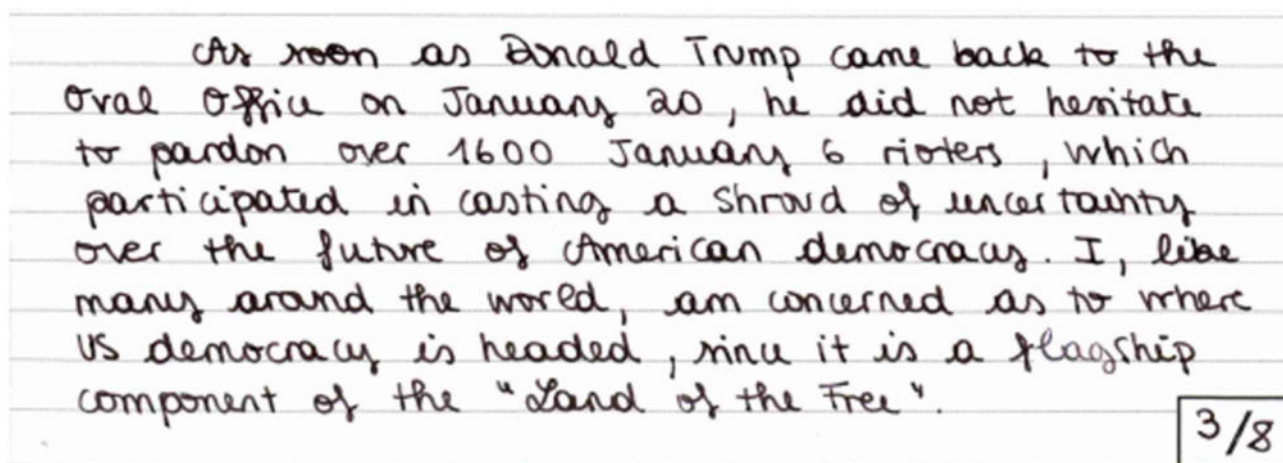 As soon as Donald Trump came back to the
Oval Office on January 20, he did not hesitate
to pardon over 1600 January 6 rioters, which
participated in casting a shroud of uncertainty
over the future of American democracy. I, like
many around the world, am concerned as to where
US democracy is headed, since it is a flagship
component of the "Land of the Free".
3/8